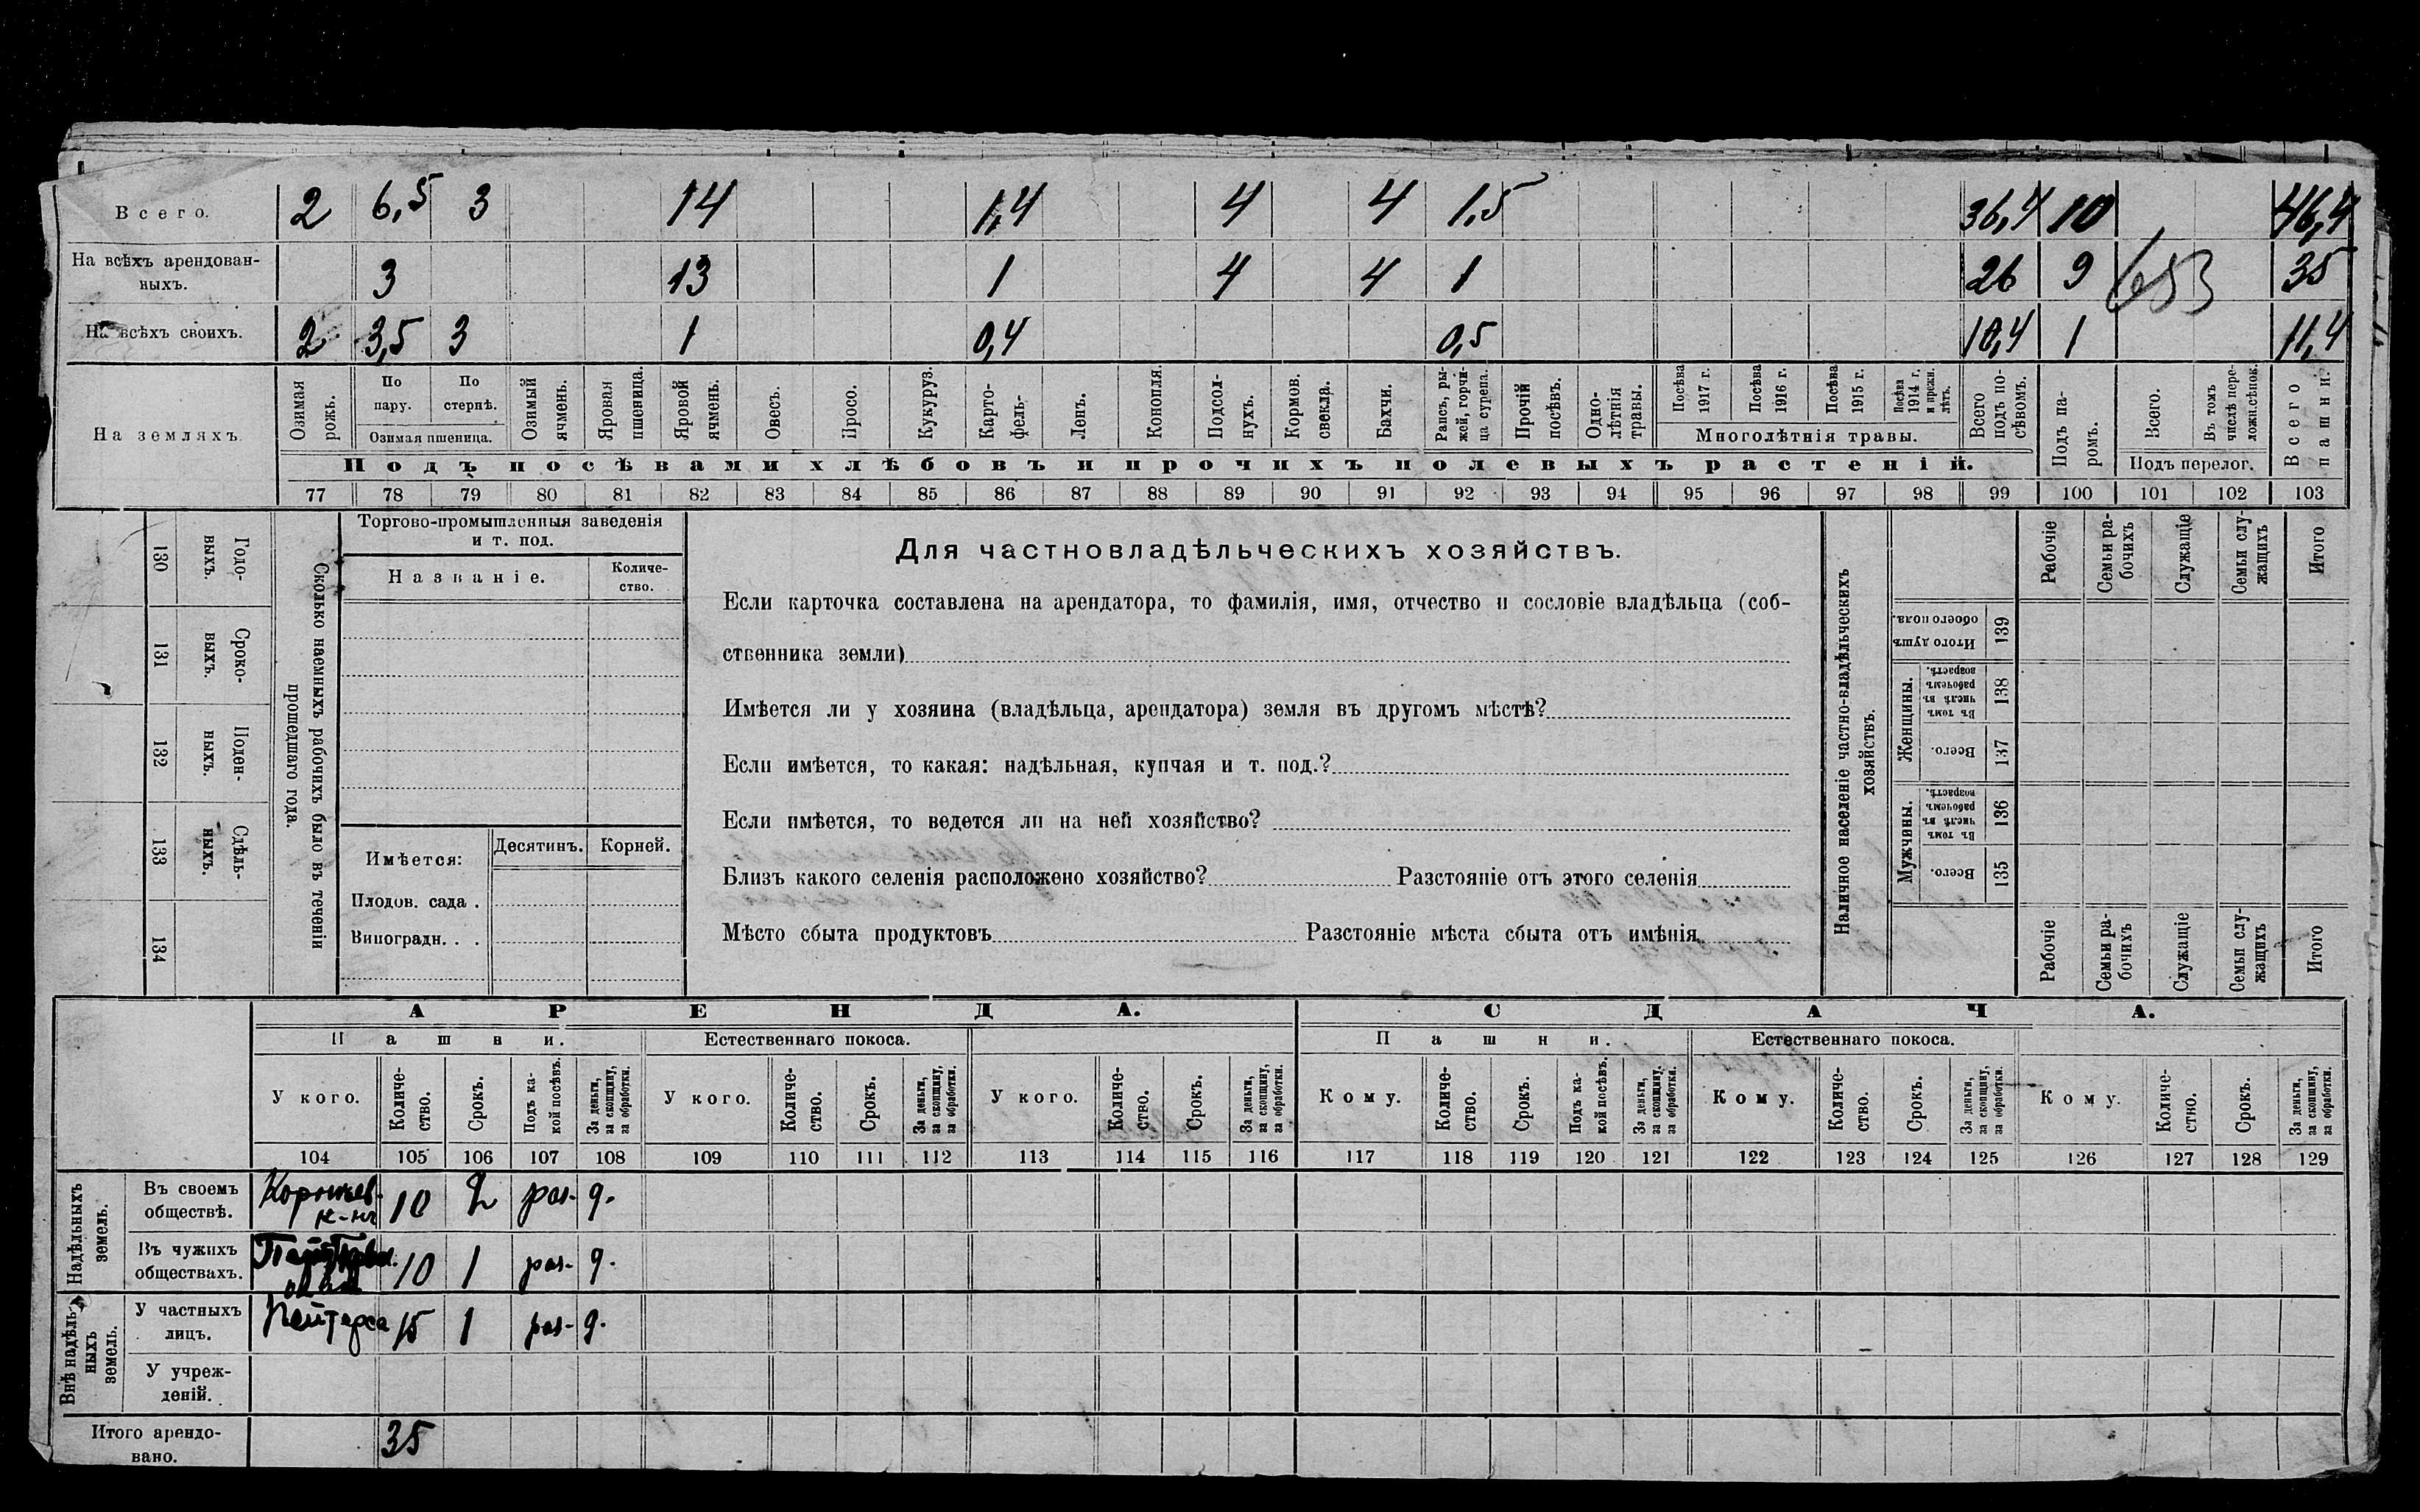 Всего. 2 6,5 3 14 1,4 4 4 1,5 36,4 10 46,4
На всѣхъ арендован-
ныхъ. 3 13 1 4 4 1 26 9 653 35
На всѣхъ своихъ. 2 3,5 3 1 0,4 0,5 10,4 1 11,4
На земляхъ.
Озимая рожь.
По пару.
По стернѣ.
Озимая пшеница.
Озимый ячмень.
Яровая пшеница.
Яровой ячмень.
Овесъ.
Просо.
Кукуруз.
Карто-
фель-
Ленъ.
Конопля.
Подсол-
нухъ.
Кормов.
свекла.
Бахчи.
Рапсъ, ры-
жей, горчи-
ца сурепа.
Прочій
посѣвъ.
Одно-
лѣтнія
травы.
Посѣва
1917 г.
Посѣва
1916 г.
Посѣва
1915 г.
Посѣва
1914 г.
и прежн.
лѣтъ.
Многолѣтнія травы.
Всего
подъ по-
сѣвомъ.
Подъ па-
ромъ.
Всего.
Въ томъ
числѣ пере-
ложн.сѣнок.
Подъ перелог.
Всего
пашни.
Подъ посѣвами хлѣбовъ и прочихъ полевыхъ растеній.
77 78 79 80 81 82 83 84 85 86 87 88 89 90 91 92 93 94 95 96 97 98 99 100 101 102 103
130 Годо-
выхъ.
131 Сроко-
выхъ.
132 Поден-
ныхъ.
133 Сдѣль-
ныхъ.
134
Сколько наемныхъ рабочихъ было въ теченіи
прошедшаго года.
Торгово-промышленныя заведенія
и т. под.
Названіе.
Количе-
ство.
Имѣется:
Десятинъ. Корней.
Плодов. сада .
Виноградн. . .
Для частновладѣльческихъ хозяйствъ.
Если карточка составлена на арендатора, то фамилія, имя, отчество и сословіе владѣльца (соб-
ственника земли)
Имѣется ли у хозяина (владѣльца, арендатора) земля въ другомъ мѣстѣ?
Если имѣется, то какая: надѣльная, купчая и т. под.?
Если имѣется, то ведется ли на ней хозяйство?
Близъ какого селенія расположено хозяйство? Разстояніе отъ этого селенія
Мѣсто сбыта продуктовъ Разстояніе мѣста сбыта отъ имѣнія
Наличное населеніе частно-владѣльческихъ
хозяйствъ.
Рабочіе
Семьи ра-
бочихъ
Служащіе
Семьи слу-
жащихъ
Итого
Итого душъ
обоего пола.
139
Женщины.
Въ томъ
числѣ въ
рабочемъ
возрастѣ.
138
Всего.
137
Мужчины.
Въ томъ
числѣ въ
рабочемъ
возрастѣ.
136
Всего.
135
Рабочіе
Семьи ра-
бочихъ
Служащіе
Семьи слу-
жащихъ
Итого
АРЕНДА. СДАЧА.
Пашни. Естественнаго покоса. Пашни. Естественнаго покоса.
У кого.
Количе-
ство.
Срокъ.
Подъ ка-
кой посѣвъ.
За деньги,
за скопщину,
за обработки.
У кого.
Количе-
ство.
Срокъ.
За деньги,
за скопщину,
за обработки.
У кого.
Количе-
ство.
Срокъ.
За деньги,
за скопщину,
за обработки.
Кому.
Количе-
ство.
Срокъ.
Подъ ка-
кой посѣвъ.
За деньги,
за скопщину,
за обработки.
Кому.
Количе-
ство.
Срокъ.
За деньги,
за скопщину,
за обработки.
Кому.
Количе-
ство.
Срокъ.
За деньги,
за скопщину,
за обработки.
104 105 106 107 108 109 110 111 112 113 114 115 116 117 118 119 120 121 122 123 124 125 126 127 128 129
Надѣльныхъ
земель.
Въ своемъ
обществѣ. 10 2 раз- д.
Въ чужихъ
обществахъ. 10 1 раз- д.
Внѣ надѣль-
ныхъ
земель.
У частныхъ
лицъ. Пейтерса 15 1 раз- д.
У учреж-
деній.
Итого арендо-
вано. 35